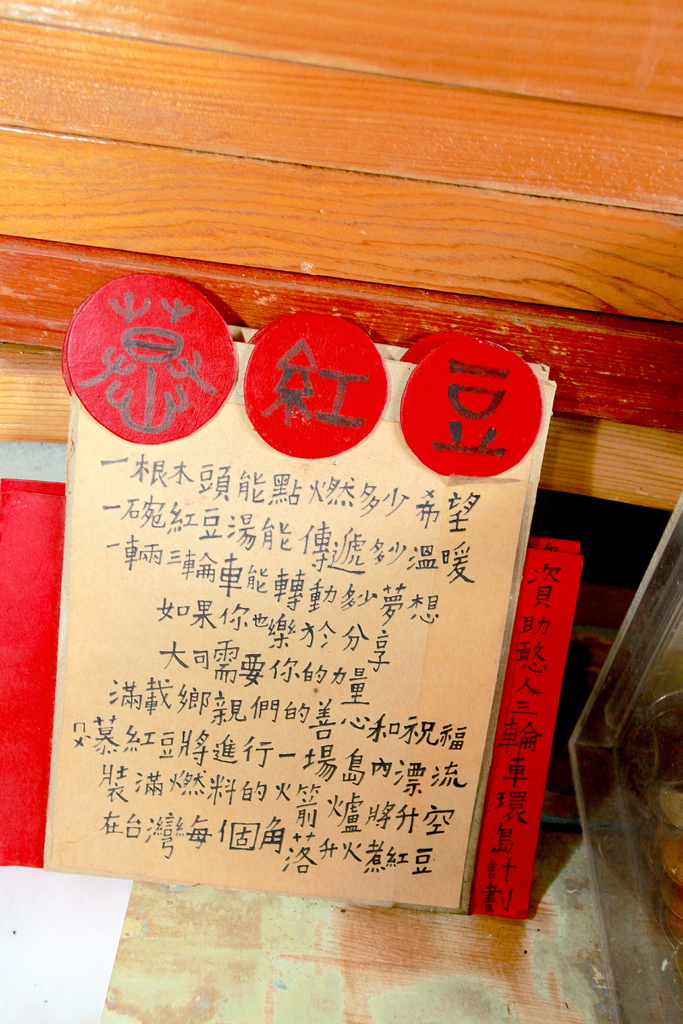 慕紅豆
一根木頭能點燃多少希望
一碗紅豆湯能傳遞多少溫暖
一輛三輪車能轉動多少夢想
如果你也樂於分享
大可需要你的力量
滿載鄉親們的善心和祝福
叹慕紅豆將進行一場島內漂流
裝滿燃料的火箭爐將升空
在台灣每個角落升火煮紅豆
資助憨人三輪車環島計劃